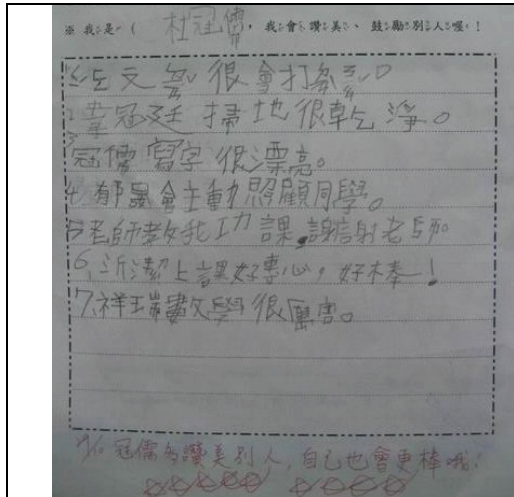 ※ 我是(杜冠儒),我會讚美、鼓勵別人喔!
很會打
2韋冠廷 掃地很乾淨。
3冠儒寫字很漂亮。
4郁 會主動照顧同學。
5老師教我功課,謝謝老師
6、沂潔上課好專心,好棒!
7、祥瑞數學很厲害。
冠儒多讚美別人,自己也會更棒哦!